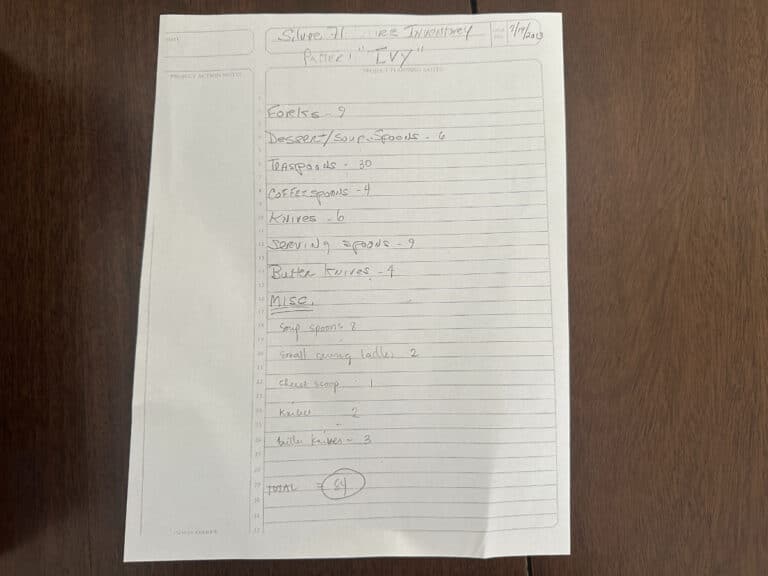 DATE
Silver Inventory 7/19/2013
Pattern "IVY"
PROJECT ACTION NOTES
PROJECT PLANNING NOTES
Forks - 9
Dessert/Soup Spoons - 6
Teaspoons - 30
Coffee spoons - 4
Knives - 6
Serving spoons - 9
Butter Knives - 4
MISC.
Soup spoons 8
small serving ladles 2
cheese scoop 1
Knives 2
butter knives - 3
TOTAL = 84